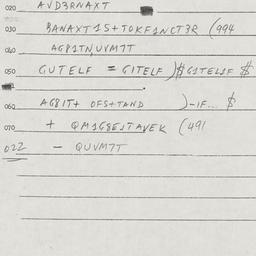 020 AVD3RNAXT
030 BANAXT1S+TOKF1NCT3R (994
040 AG81TN,UVM7T
050 GUTELF = GITELF )$ G1TEL1F $
060 AG8IT+ OFS+TAND )-1F... $
070 + QM1G8E1TAVEK (491
022 - QUVM7T